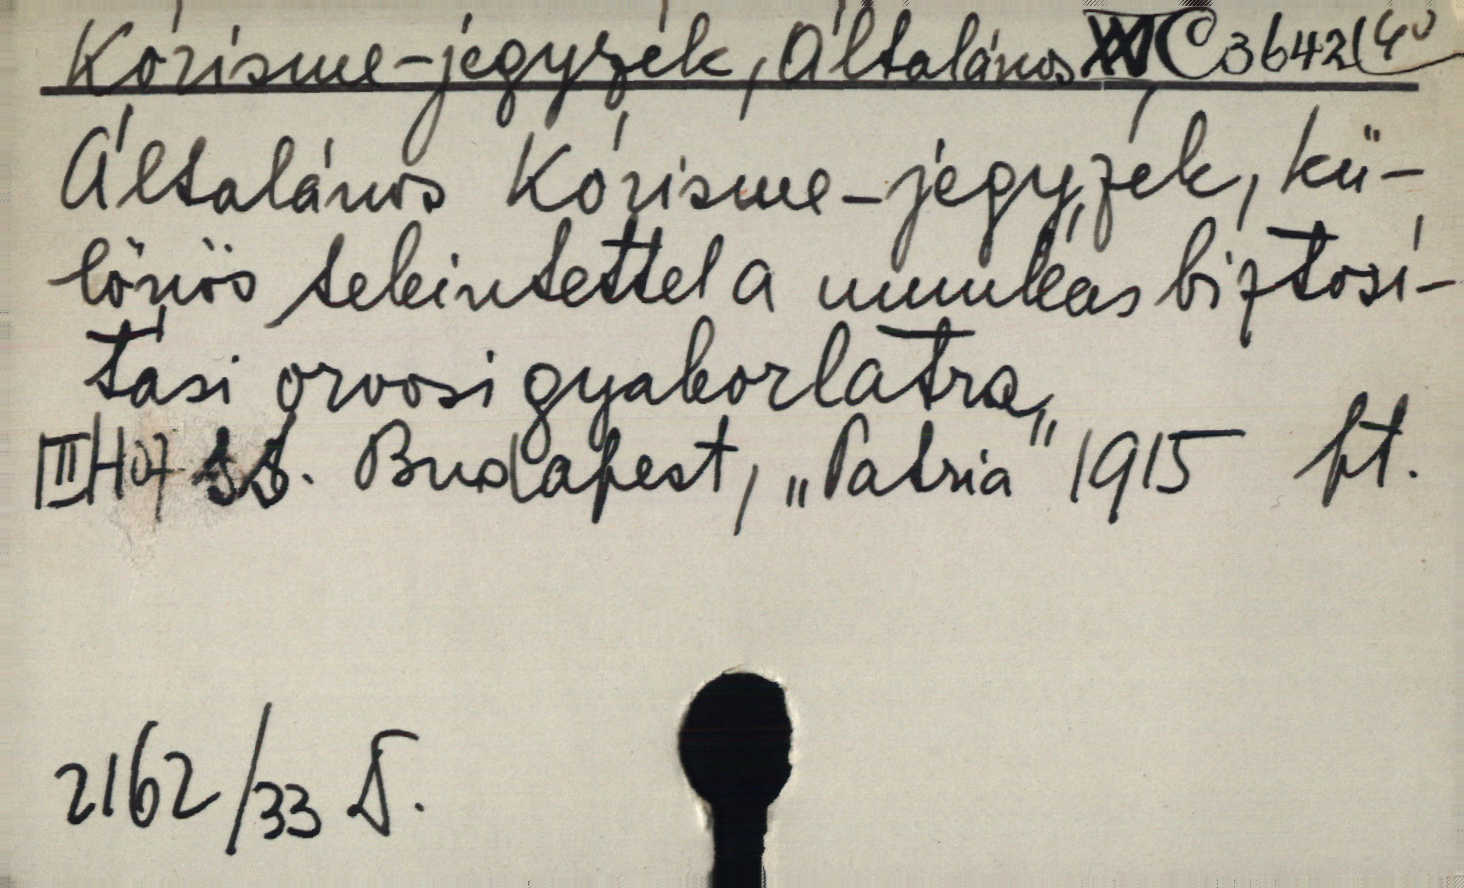 Kórisme-jegyzék, Általános C 3642
Általános Kórisme-jegyzék, kü-
lönös tekintettel a munkás biztosí-
tási orvosi gyakorlatra,
III H 07 Budapest, „Patria" 1915 ft.
2162/33 D.